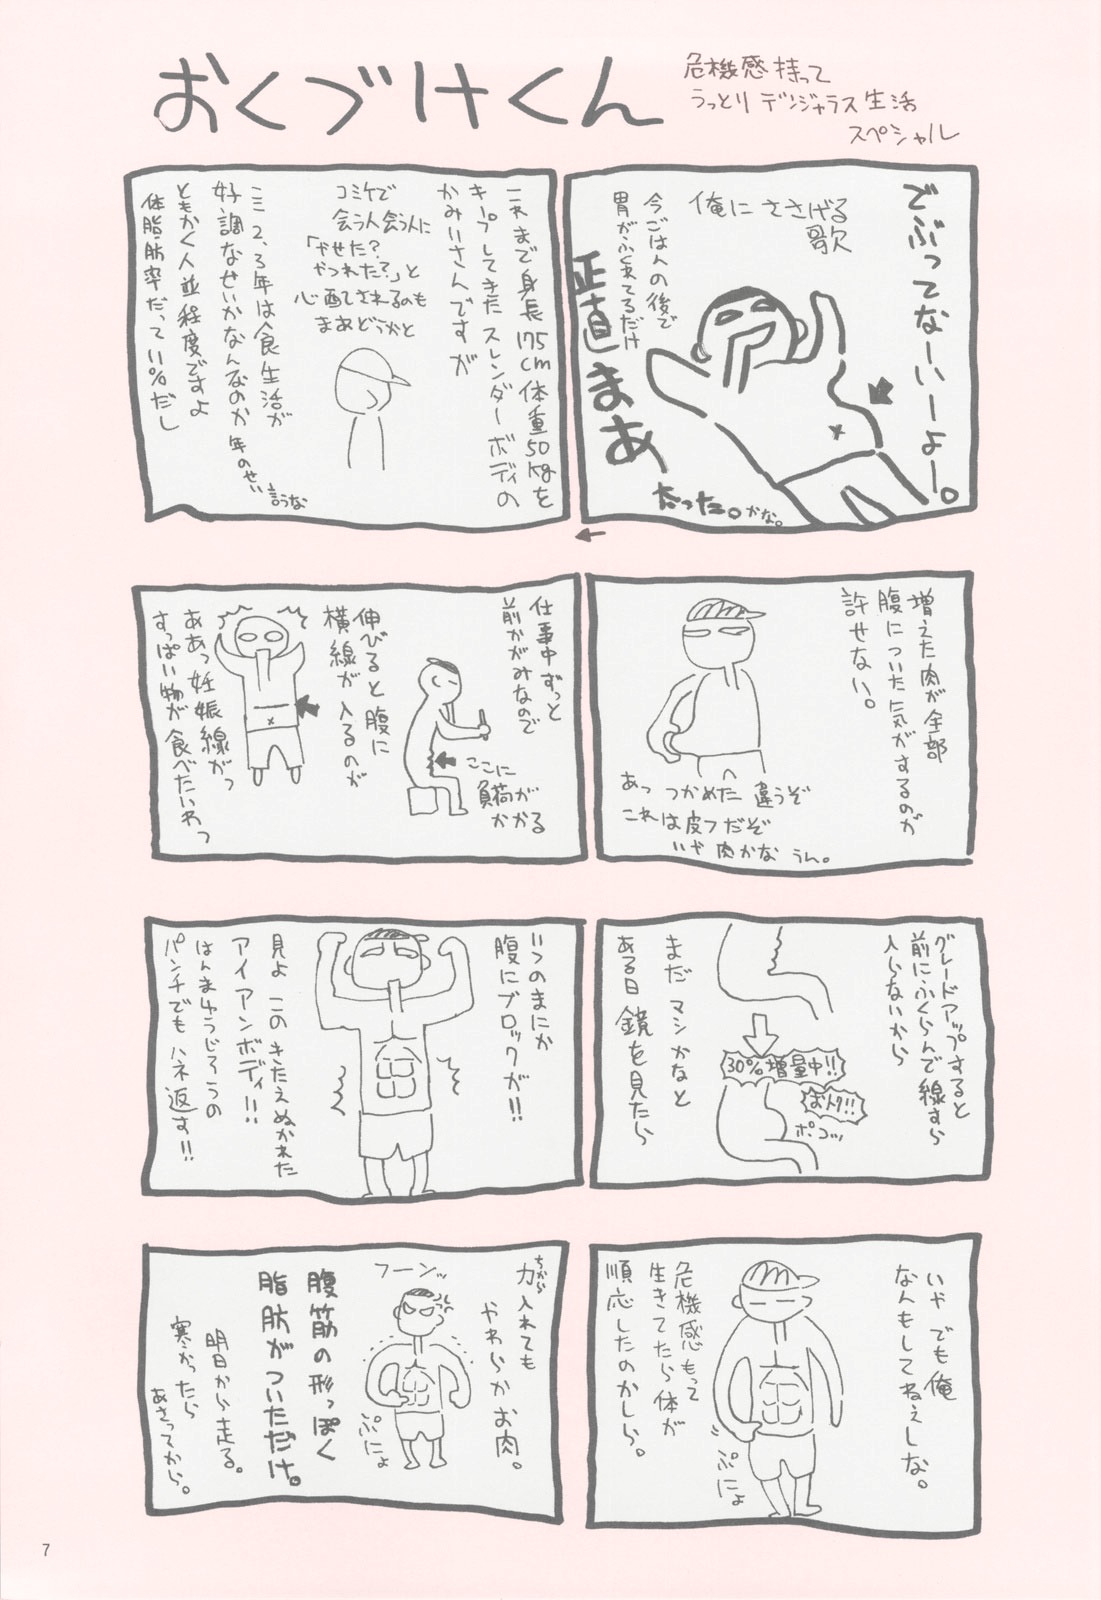 おくづけくん
危機感持って
うっとりデンジャラス生活
スペシャル
でぶってなーいーよー。
俺にささげる
歌
今ごはんの後で
胃がふくれてるだけ
正直まあ
太った。かな。
これまで身長175cm体重50kgを
キープしてきたスレンダーボディの
かみいさんですが
コミケで
会う人会う人に
「やせた?
やつれた?」と
心配されるのも
まあどうかと
ここ2、3年は食生活が
好調なせいかなんなのか年のせい
言うな
ともかく人並程度ですよ
体脂肪率だって11%だし
増えた肉が全部
腹についた気がするのが
許せない。
あっ つかめた 違うぞ
これは皮フだぞ
いや 肉かな うん。
仕事中ずっと
前かがみなので
ここに
負荷が
かかる
伸びると腹に
横線が入るのが
ああっ妊娠線がっ
すっぱい物が食べたいわっ
グレードアップすると
前にふくらんで線すら
入らないから
30%増量中!!
おトク!!
ポコッ
まだマシかなと
ある日鏡を見たら
いつのまにか
腹にブロックが!!
見よ このきたえぬかれた
アイアンボディ!!
はんまゆうじろうの
パンチでもハネ返す!!
いや でも俺
なんもしてねぇしな。
危機感もって
生きてたら体が
順応したのかしら。
ぷにょ
ちから
力入れても
やわらかお肉。
フーンッ
ぷにょ
腹筋の形っぽく
脂肪がついただけ。
明日から走る。
寒かったら
あさってから。
7